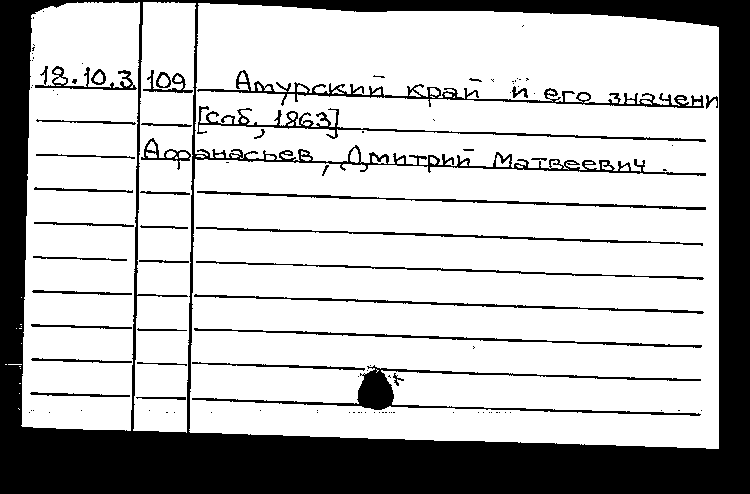 18.10.3 109 Амурский край и его значени
[спб., 1863]
Афанасьев, Дмитрий Матвеевич.